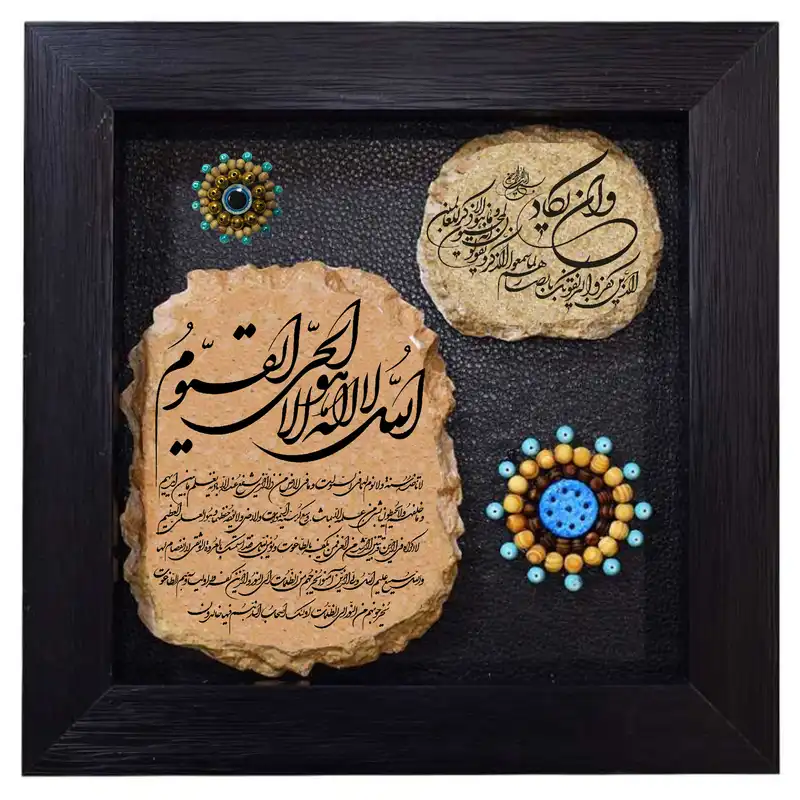 الله لا اله الا هو الحی القیوم
لا تاخذه سنة ولا نوم له ما فی السموات وما فی الارض من ذا الذی یشفع عنده الا باذنه یعلم ما بین ایدیهم
وما خلفهم ولا یحیطون بشیء من علمه الا بما شاء وسع کرسیه السموات والارض ولا یؤده حفظهما وهو العلی العظیم
لا اکراه فی الدین قد تبین الرشد من الغی فمن یکفر بالطاغوت ویؤمن بالله فقد استمسک بالعروة الوثقی لا انفصام لها
والله سمیع علیم الله ولی الذین آمنوا یخرجهم من الظلمات الی النور والذین کفروا اولیاؤهم الطاغوت
یخرجونهم من النور الی الظلمات اولئک اصحاب النار هم فیها خالدون
وان یکاد
الذین کفروا لیزلقونک بابصارهم لما سمعوا الذکر ویقولون
انه لمجنون وما هو الا ذکر للعالمین